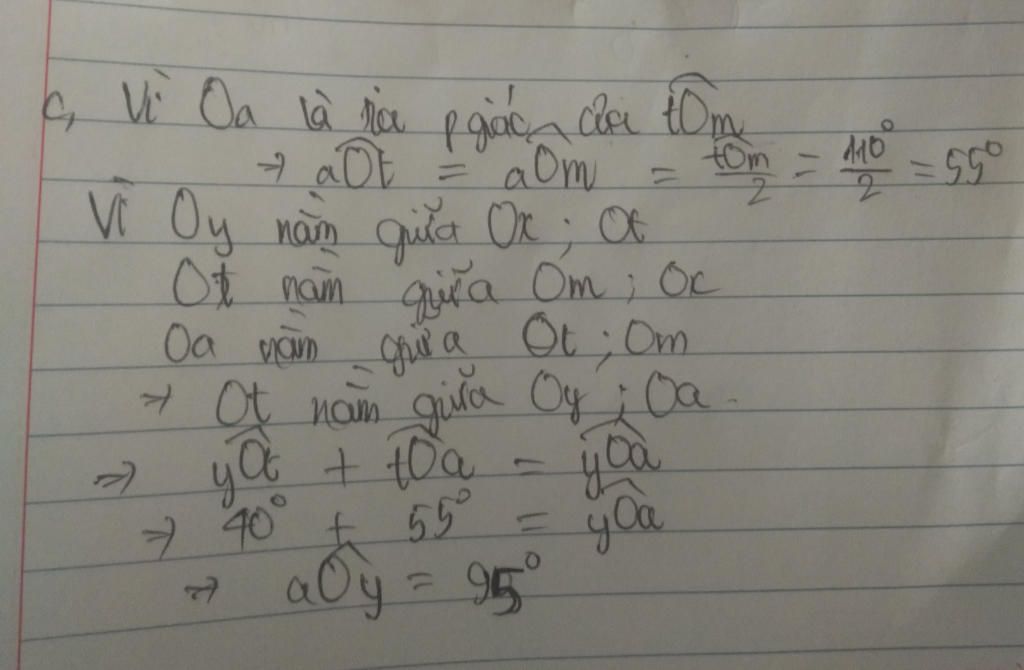 c, Vì Oa là tia p giác của tOm
→ aOt = aOm = tOm/2 = 110°/2 = 55°
Vì Oy nằm giữa Ox ; Ot
Ot nằm giữa Om ; Ox
Oa nằm giữa Ot ; Om
→ Ot nằm giữa Oy ; Oa.
⇒ yOt + tOa = yOa
⇒ 40° + 55° = yOa
⇒ aOy = 95°